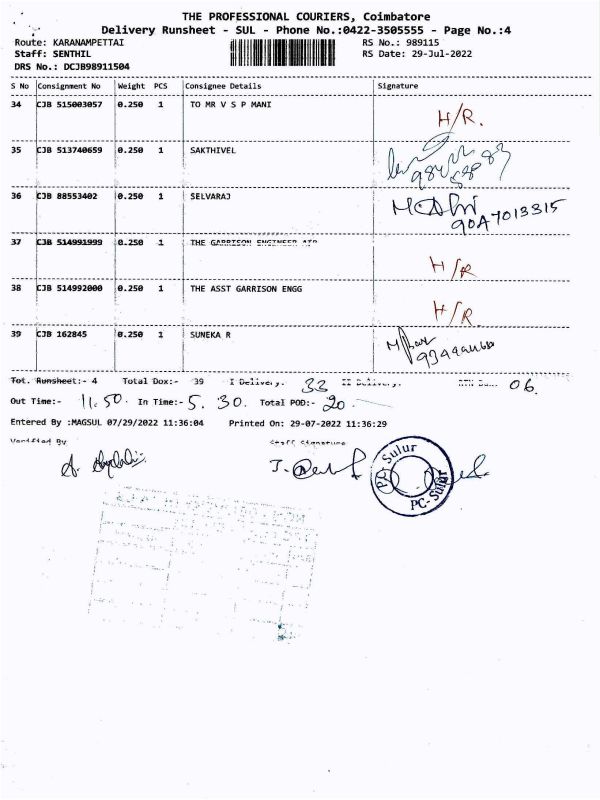 THE PROFESSIONAL COURIERS, Coimbatore
Delivery Runsheet - SUL - Phone No.:0422-3505555 - Page No.:4
Route: KARANAMPETTAI RS No.: 989115
Staff: SENTHIL RS Date: 29-Jul-2022
DRS No.: DCJB98911504
S No Consignment No Weight PCS Consignee Details Signature
34 CJB 515003057 0.250 1 TO MR V S P MANI
H/R.
35 CJB 513740659 0.250 1 SAKTHIVEL
36 CJB 88553402 0.250 1 SELVARAJ
37 CJB 514991999 0.250 1 THE GARRISON ENGINEER AIR
H/R
38 CJB 514992000 0.250 1 THE ASST GARRISON ENGG
H/R
39 CJB 162845 0.250 1 SUNEKA R
Tot. Runsheet:- 4 Total Dox:- 39 I Delivery. 33 II Delivery. 06
Out Time:- 11.50 In Time:- 5.30. Total POD:- 20
Entered By :MAGSUL 07/29/2022 11:36:04 Printed On: 29-07-2022 11:36:29
Verified By Staff Signature
PC-Sulur
PC-Sulur